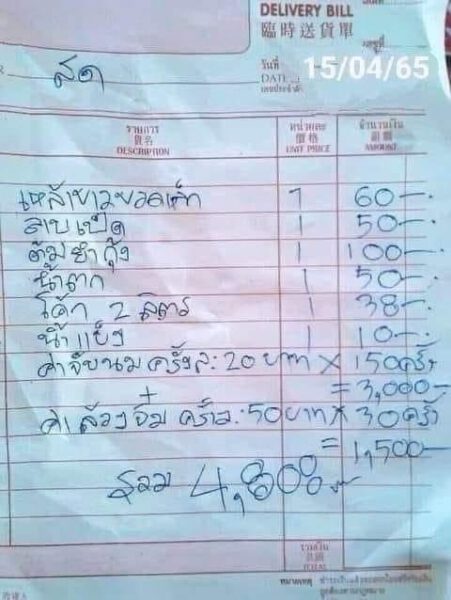 DELIVERY BILL
臨時送貨單
เลขที่
วันที่
DATE
15/04/65
เลขประจำตัว
สด
รายการ
貨名
DESCRIPTION
หน่วยละ
價格
UNIT PRICE
จำนวนเงิน
AMOUNT
เหล้าขาว 1 60-
ลาบเป็ด 1 50-
ต้มยำกุ้ง 1 100-
น้ำตก 1 50-
โค้ก 2 ลิตร 1 38-
น้ำแข็ง 1 10-
ค่าจับนม ครั้งละ 20 บาท × 150 ครั้ง
= 3,000-
+
ค่าล้วงจิ๋ม ครั้งละ 50 บาท × 30 ครั้ง
= 1,500-
รวม 4,808
รวมเงิน
TOTAL
หมายเหตุ